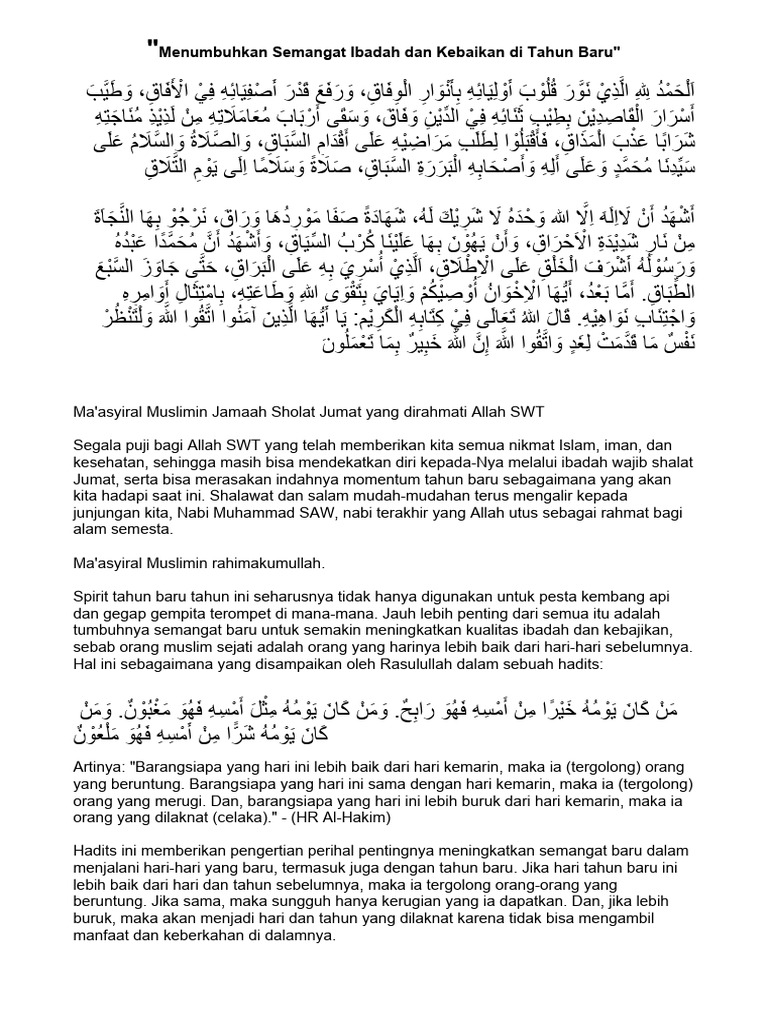 "Menumbuhkan Semangat Ibadah dan Kebaikan di Tahun Baru"
اَلْحَمْدُ لِلهِ الَّذِيْ نَوَّرَ قُلُوْبَ أَوْلِيَائِهِ بِأَنْوَارِ الْوِفَاقِ، وَرَفَعَ قَدْرَ أَصْفِيَائِهِ فِيْ الْأَفَاقِ، وَطَيَّبَ
أَسْرَارَ الْقَاصِدِيْنَ بِطِيْبِ ثَنَائِهِ فِيْ الدِّيْنِ وَفَاقَ، وَسَقَى أَرْبَابَ مُعَامَلَاتِهِ مِنْ لَذِيْذِ مُنَاجَتِهِ
شَرَابًا عَذْبَ الْمَذَاقِ، فَأَقْبَلُوْا لِطَلَبِ مَرَاضِيْهِ عَلَى أَقْدَامِ السَّبَاقِ، وَالصَّلَاةُ وَالسَّلَامُ عَلَى
سَيِّدِنَا مُحَمَّدٍ وَعَلَى أَلِهِ وَأَصْحَابِهِ الْبَرَرَةِ السَّبَاقِ، صَلَاةً وَسَلَامًا اِلَى يَوْمِ التَّلَاقِ
أَشْهَدُ أَنْ لَااِلَهَ اِلَّا الله وَحْدَهُ لَا شَرِيْكَ لَهُ، شَهَادَةً صَفَا مَوْرِدُهَا وَرَاقَ، نَرْجُوْ بِهَا النَّجَاةَ
مِنْ نَارِ شَدِيْدَةِ الْاَحْرَاقِ، وَأَنْ يَهُوْنَ بِهَا عَلَيْنَا كُرْبُ السِّيَاقِ، وَأَشْهَدُ أَنَّ مُحَمَّدًا عَبْدُهُ
وَرَسُوْلُهُ أَشْرَفَ الْخَلْقِ عَلَى الْاِطْلَاقِ، اَلَّذِيْ أُسْرِيَ بِهِ عَلَى الْبَرَاقِ، حَتَّى جَاوَزَ السَّبْعَ
الطِّبَاقِ. أَمَّا بَعْدُ، أَيُّهَا الْاِخْوَانُ أُوْصِيْكُمْ وَاِيَايَ بِتَقْوَى اللهِ وَطَاعَتِهِ، بِامْتِثَالِ أَوَامِرِهِ
وَاجْتِنَابِ نَوَاهِيْهِ. قَالَ اللهُ تَعَالَى فِيْ كِتَابِهِ الْكَرِيْمِ: يَا أَيُّهَا الَّذِينَ آمَنُوا اتَّقُوا اللَّهَ وَلْتَنْظُرْ
نَفْسٌ مَا قَدَّمَتْ لِغَدٍ وَاتَّقُوا اللَّهَ إِنَّ اللَّهَ خَبِيرٌ بِمَا تَعْمَلُونَ
Ma'asyiral Muslimin Jamaah Sholat Jumat yang dirahmati Allah SWT
Segala puji bagi Allah SWT yang telah memberikan kita semua nikmat Islam, iman, dan
kesehatan, sehingga masih bisa mendekatkan diri kepada-Nya melalui ibadah wajib shalat
Jumat, serta bisa merasakan indahnya momentum tahun baru sebagaimana yang akan
kita hadapi saat ini. Shalawat dan salam mudah-mudahan terus mengalir kepada
junjungan kita, Nabi Muhammad SAW, nabi terakhir yang Allah utus sebagai rahmat bagi
alam semesta.
Ma'asyiral Muslimin rahimakumullah.
Spirit tahun baru tahun ini seharusnya tidak hanya digunakan untuk pesta kembang api
dan gegap gempita terompet di mana-mana. Jauh lebih penting dari semua itu adalah
tumbuhnya semangat baru untuk semakin meningkatkan kualitas ibadah dan kebajikan,
sebab orang muslim sejati adalah orang yang harinya lebih baik dari hari-hari sebelumnya.
Hal ini sebagaimana yang disampaikan oleh Rasulullah dalam sebuah hadits:
مَنْ كَانَ يَوْمُهُ خَيْرًا مِنْ أَمْسِهِ فَهُوَ رَابِحٌ. وَمَنْ كَانَ يَوْمُهُ مِثْلَ أَمْسِهِ فَهُوَ مَغْبُوْنٌ. وَمَنْ
كَانَ يَوْمُهُ شَرًّا مِنْ أَمْسِهِ فَهُوَ مَلْعُوْنٌ
Artinya: "Barangsiapa yang hari ini lebih baik dari hari kemarin, maka ia (tergolong) orang
yang beruntung. Barangsiapa yang hari ini sama dengan hari kemarin, maka ia (tergolong)
orang yang merugi. Dan, barangsiapa yang hari ini lebih buruk dari hari kemarin, maka ia
orang yang dilaknat (celaka)." - (HR Al-Hakim)
Hadits ini memberikan pengertian perihal pentingnya meningkatkan semangat baru dalam
menjalani hari-hari yang baru, termasuk juga dengan tahun baru. Jika hari tahun baru ini
lebih baik dari hari dan tahun sebelumnya, maka ia tergolong orang-orang yang
beruntung. Jika sama, maka sungguh hanya kerugian yang ia dapatkan. Dan, jika lebih
buruk, maka akan menjadi hari dan tahun yang dilaknat karena tidak bisa mengambil
manfaat dan keberkahan di dalamnya.